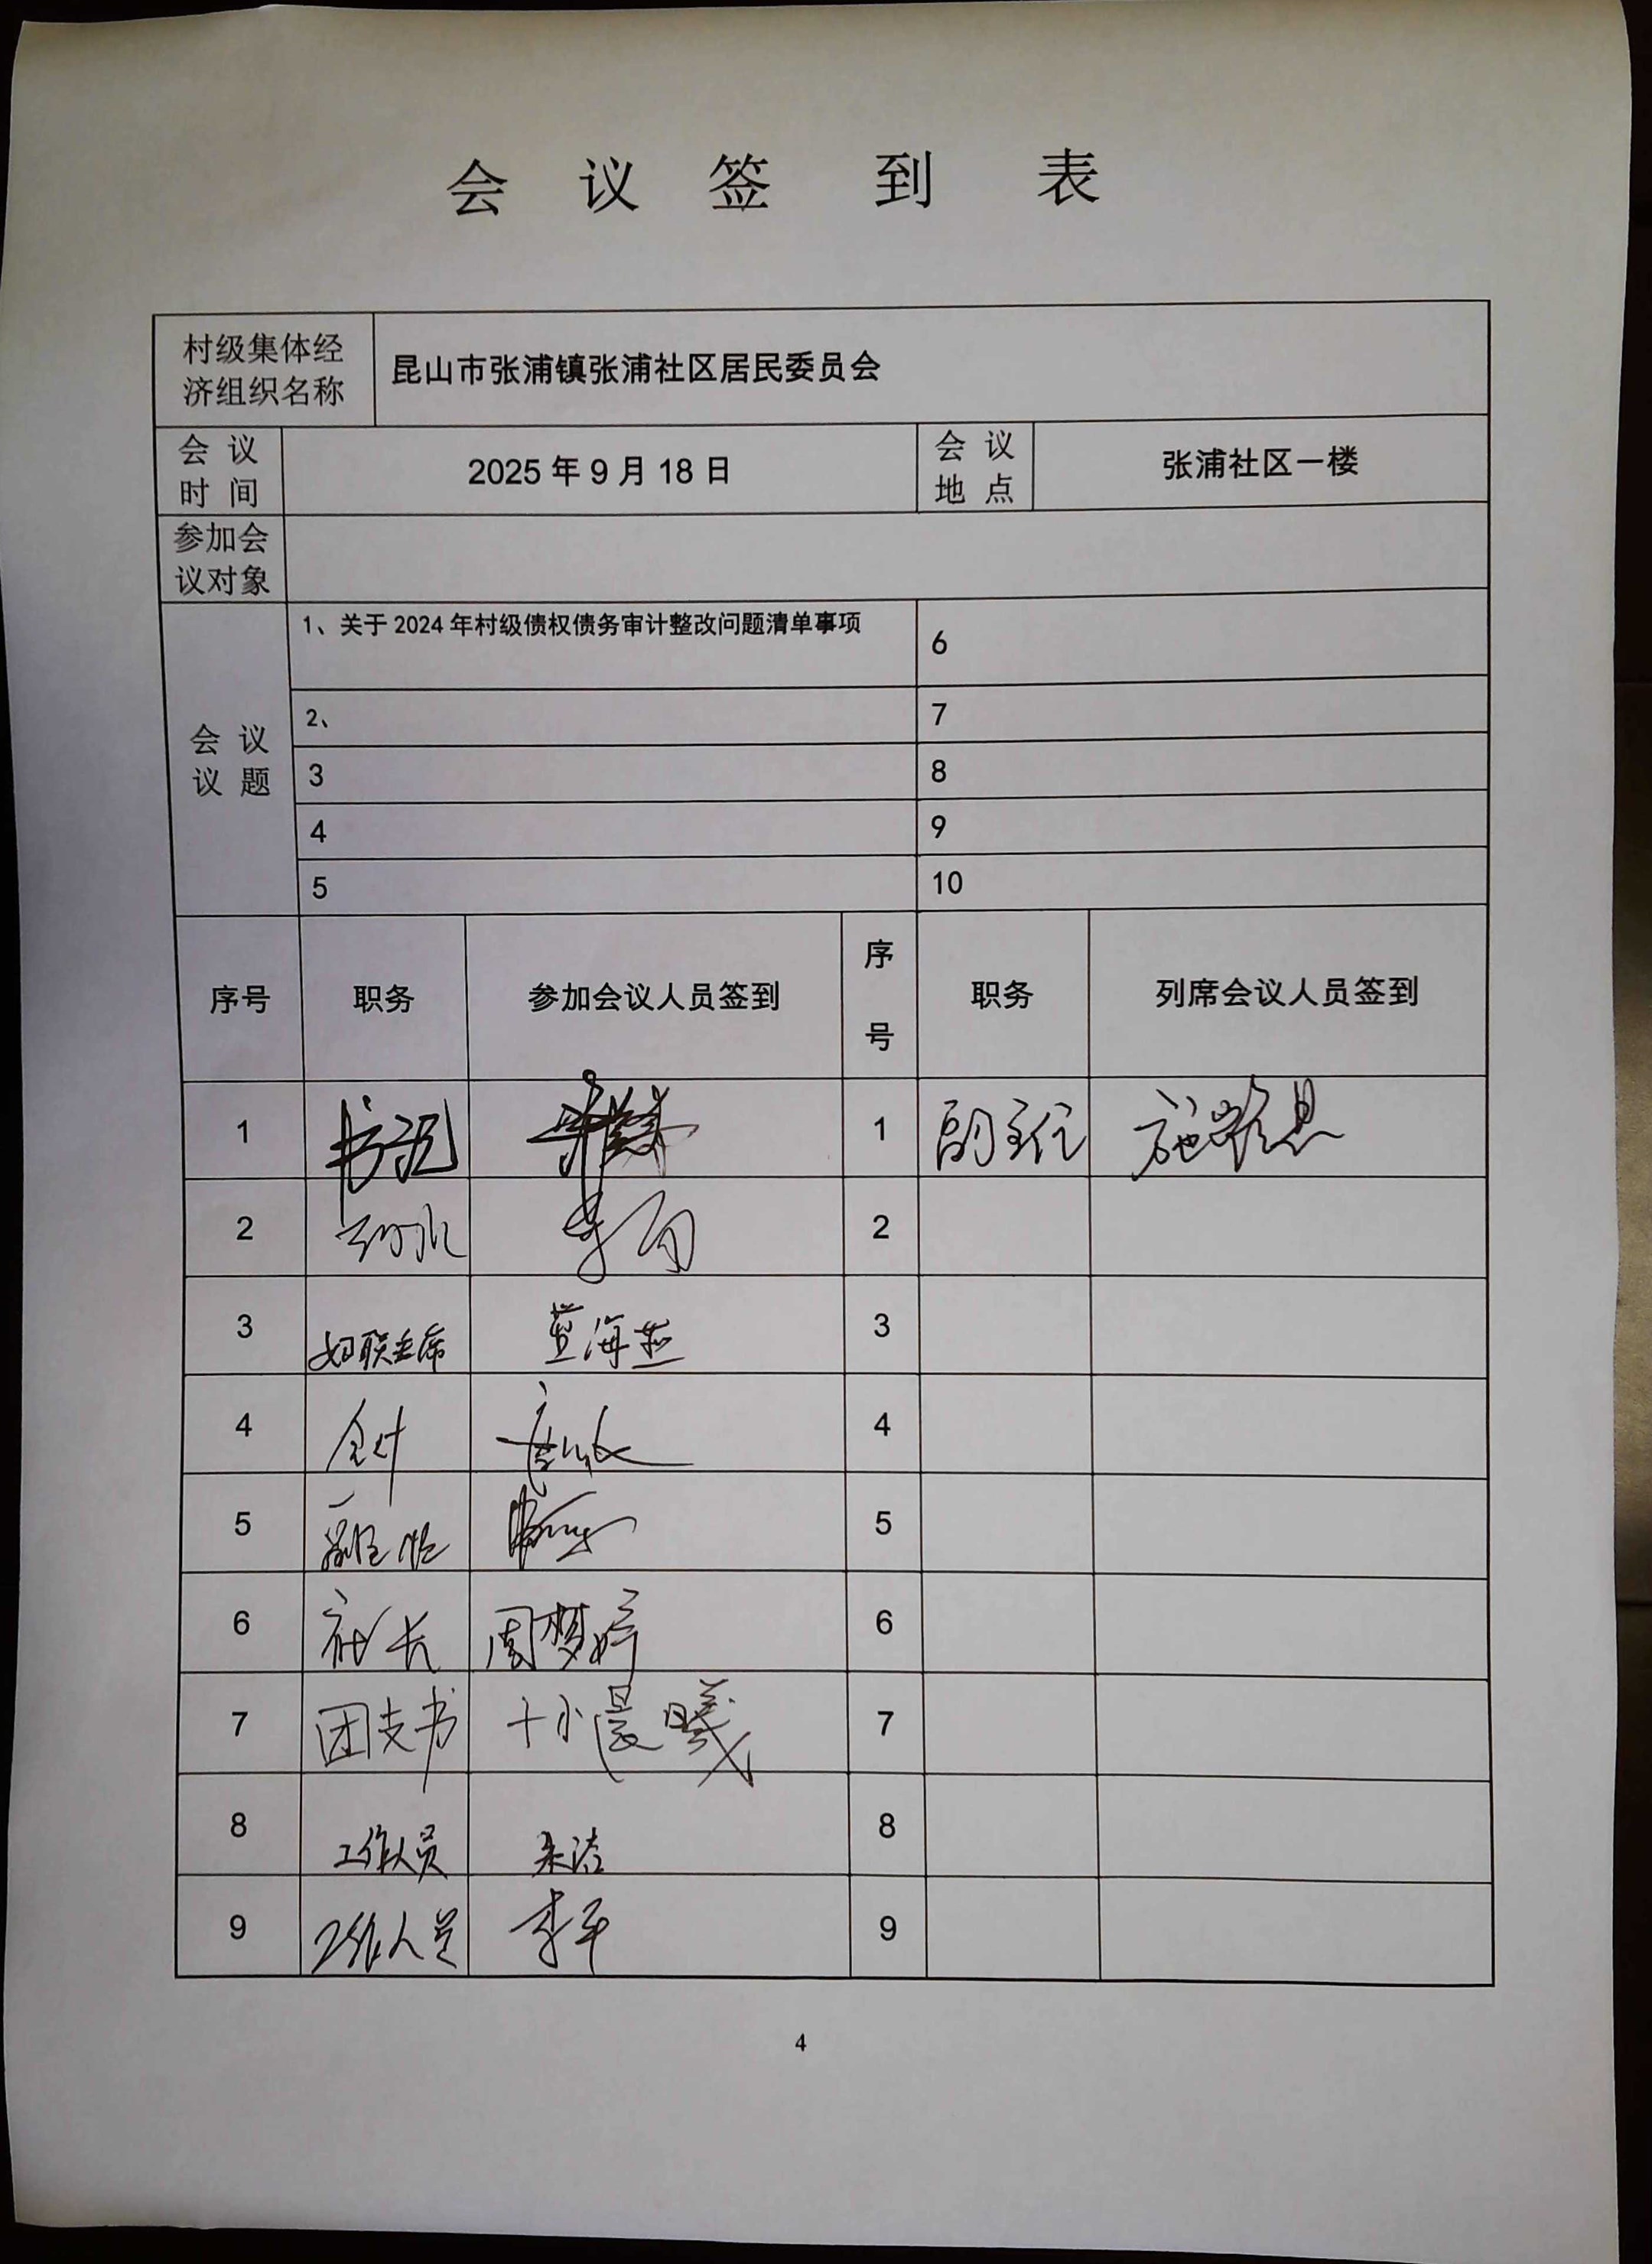 会 议 签 到 表
村级集体经
济组织名称
昆山市张浦镇张浦社区居民委员会
会 议
时 间
2025 年 9 月 18 日
会 议
地 点
张浦社区一楼
参加会
议对象
会 议
议 题
1、关于 2024 年村级债权债务审计整改问题清单事项
6
2、
7
3
8
4
9
5
10
序号 职务 参加会议人员签到
序
号
职务 列席会议人员签到
1 书记 1 副主任
2 2
3 妇联主席 蓝海燕 3
4 会计 4
5 5
6 社长 周梦婷 6
7 团支书 卞晨曦 7
8 工作人员 朱洁 8
9 工作人员 李平 9
4